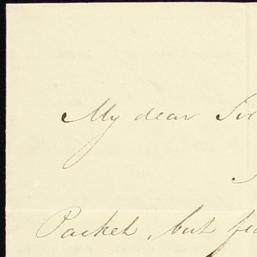 My dear Sir
Packet, but